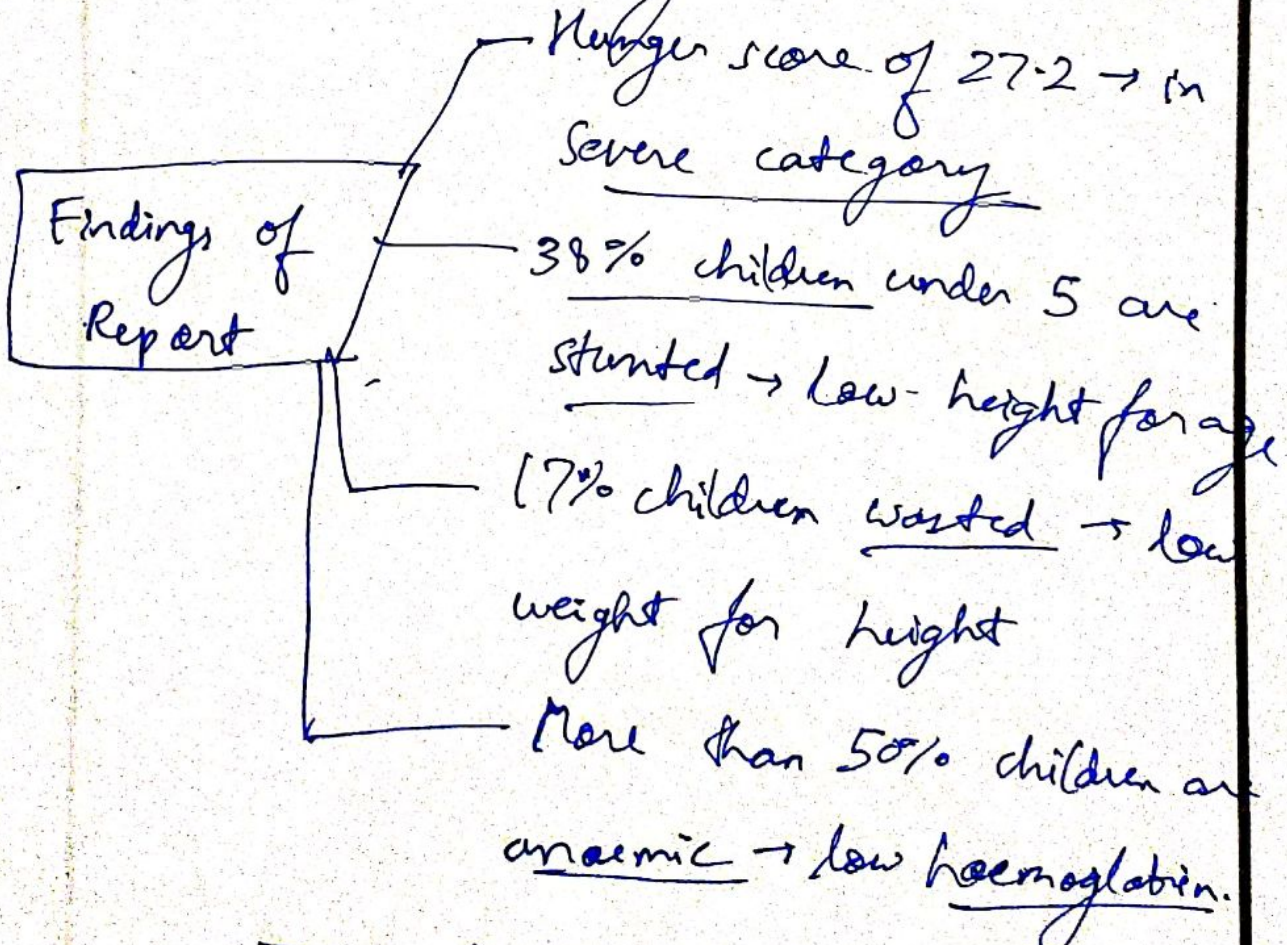 Findings of
Report
Hunger score of 27.2 → in
Severe category
38% children under 5 are
stunted → Low-height for age
17% children wasted → low
weight for height
More than 50% children are
anaemic → low haemoglobin.